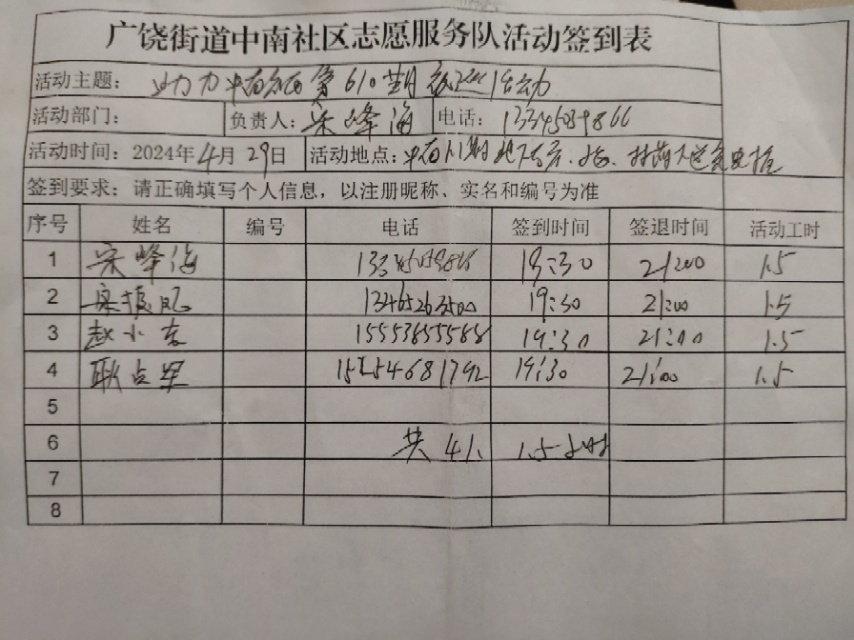 广饶街道中南社区志愿服务队活动签到表
活动主题: 助力中南 第610期夜巡活动
活动部门: 负责人: 宋峰海 电话: 13345039866
活动时间: 2024年4月29日 活动地点: 中南
签到要求: 请正确填写个人信息，以注册昵称、实名和编号为准
序号 姓名 编号 电话 签到时间 签退时间 活动工时
1 宋峰海 19:30 21:00 1.5
2 13465263500 19:30 21:00 1.5
3 赵小东 15553855588 19:30 21:00 1.5
4 耿占军 19:30 21:00 1.5
5
6 共4人 1.5小时
7
8